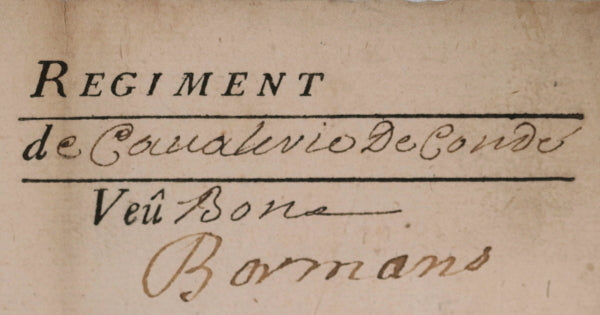 REGIMENT
de Cavalerie De Condé
Veû Bon
Bormans